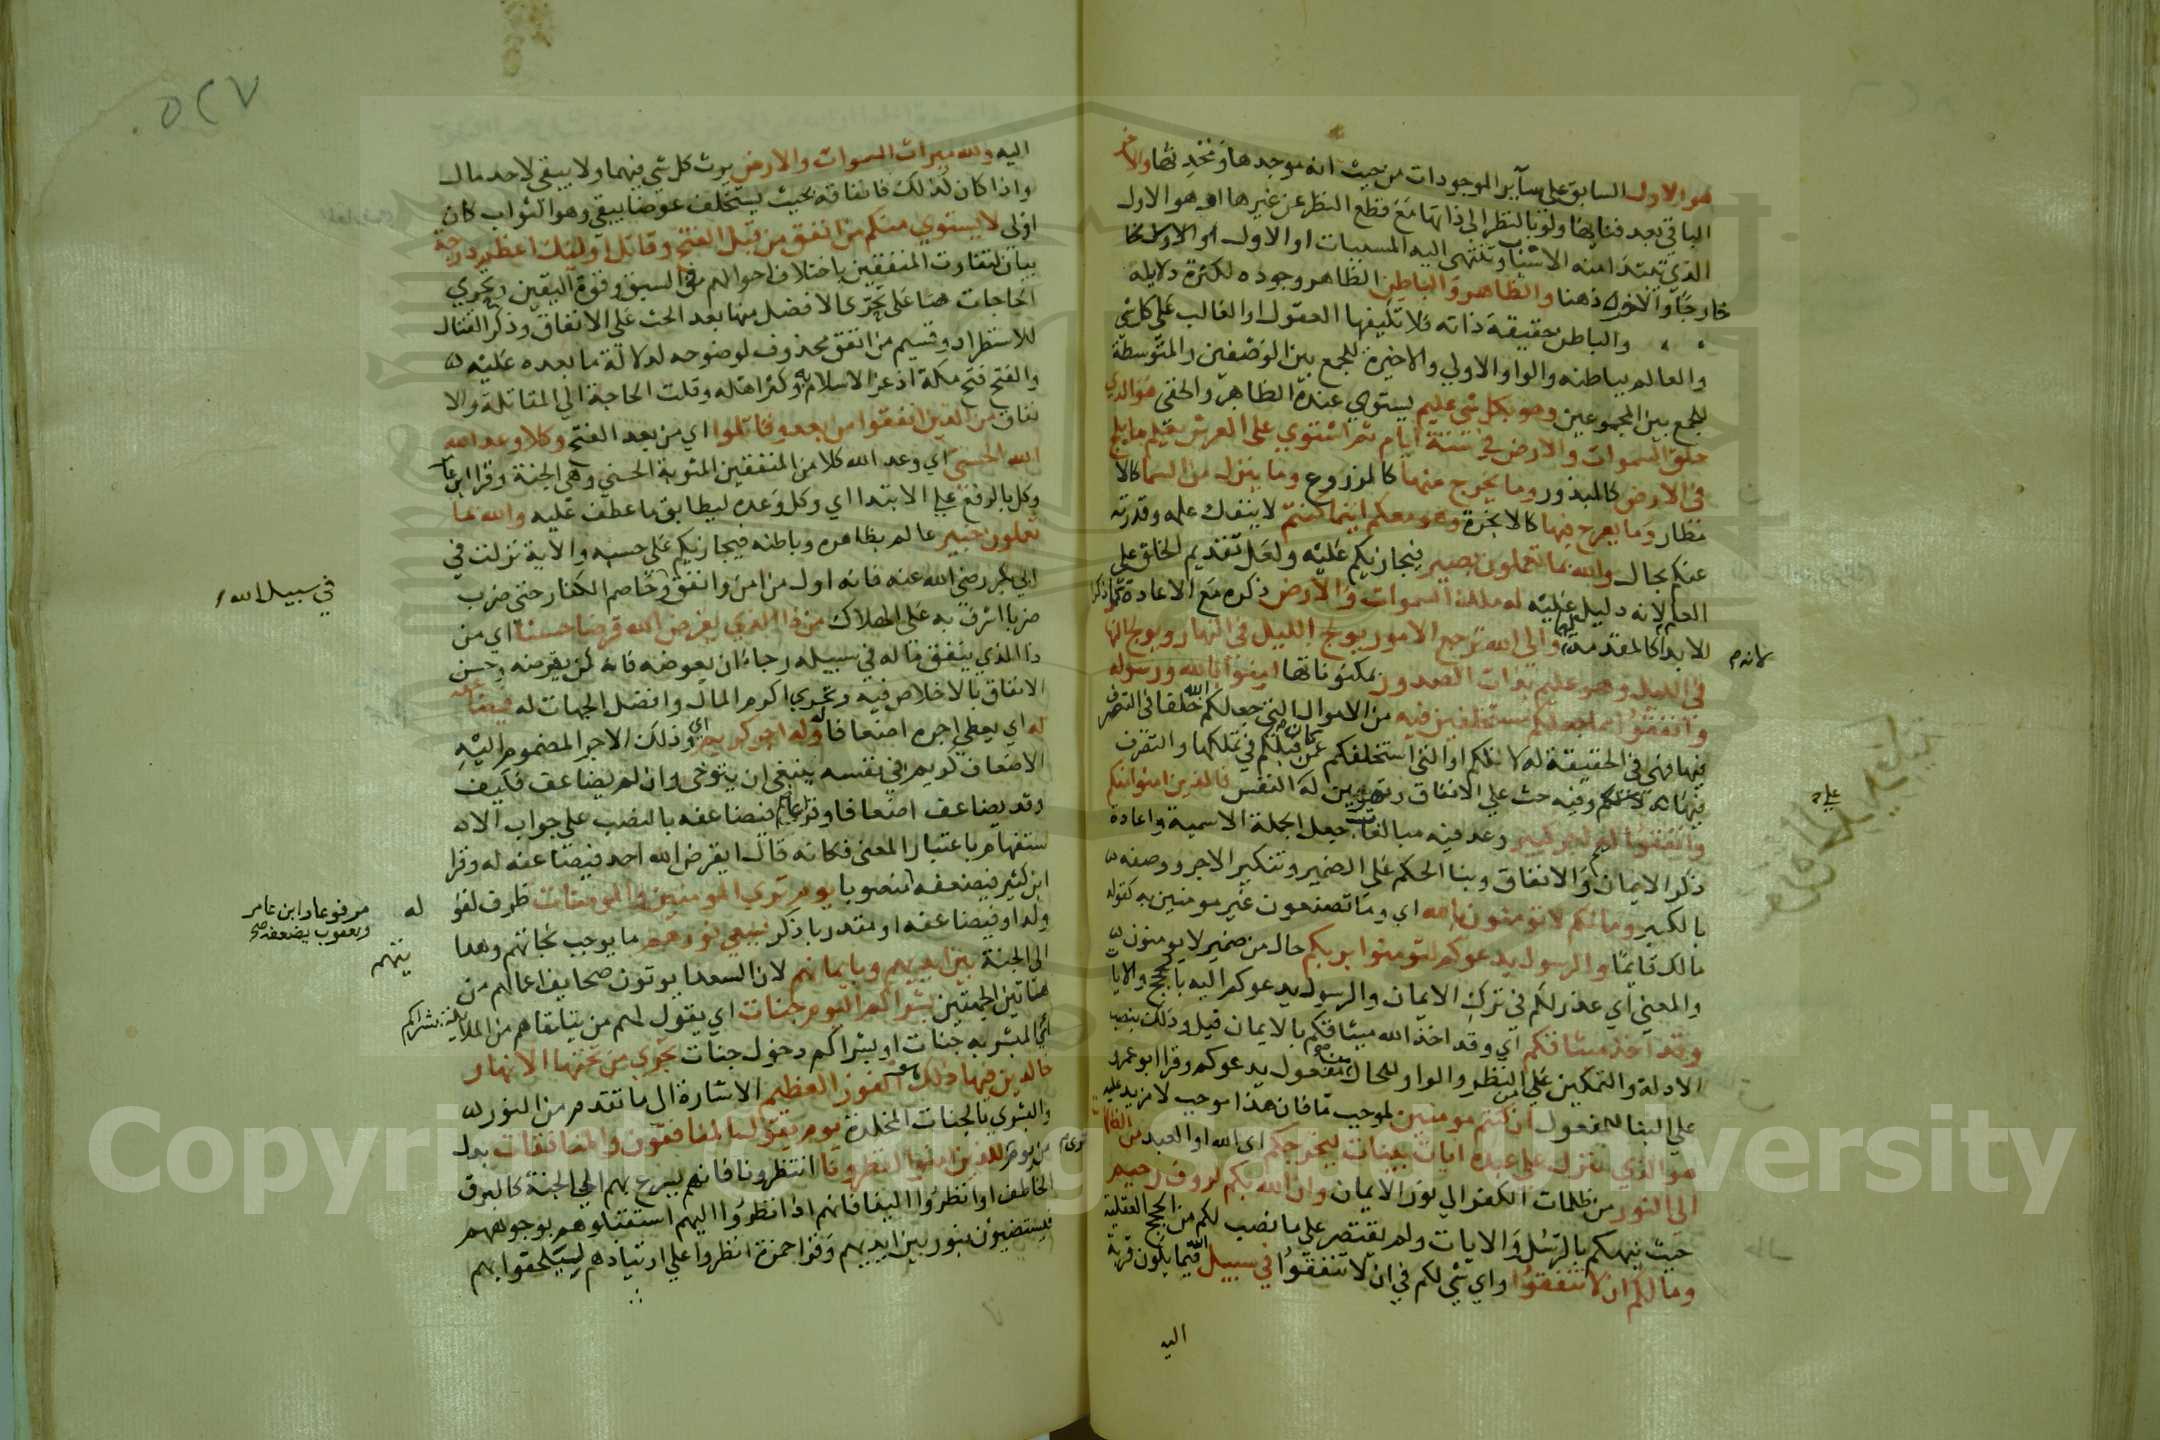 هو الاول السابق على سآير الموجودات من حيث انه موجدها ومحدثها والاخر
الباقي بعد فنايها ولو بالنظر الى ذاتها مع قطع النظر عن غيرها او هو الاول
الذي تبتدا منه الاسباب وتنتهي اليه المسببات او الاول
خارجا والاخر ذهنا والظاهر والباطن الظاهر وجوده لكثرة دلايله
والباطن حقيقة ذاته فلا تكيفها العقول او الغالب على كل شي
والعالم بباطنه والواو الاولي والاخيرة للجمع بين الوصفين والمتوسطة
للجمع بين المجموعين وهو بكل شي عليم يستوي عنده الظاهر والخفي هو الذي
خلق السموات والارض في ستة ايام ثم استوي على العرش يعلم ما يلج
في الارض كالبذور وما يخرج منها كالزروع وما ينزل من السما كالا
مطار وما يعرج فيها كالابخرة وهو معكم اينما كنتم لا ينفك علمه وقدرته
عنكم بحال والله بما تعملون بصير فيجازيكم عليه ولعل تقديم الخلق علي
العلم لانه دليل عليه له ملك السموات والارض ذكره مع الاعادة كما ذكر
للابدا كالمقدمة والى الله ترجع الامور يولج الليل في النهار ويولج النها
لانه م
في الليل وهو عليم بذات الصدور بمكنوناتها امنوا بالله ورسوله
وانفقوا مما جعلكم مستخلفين فيه من الاموال التي جعلكم الله خلفا في التصرف
فيها فهي في الحقيقة له لا لكم او التي استخلفكم عن قبلكم في تملكها والتصرف
فيها وفيه حث علي الانفاق وتهوين له النفس فالذين امنوا منكم
وانفقوا لهم اجر كبير وعد فيه مبالغات جعل الجملة الاسمية واعادة
ذكر الايمان والانفاق وبنا الحكم علي الضمير وتنكير الاجر ووصفه
بالكبير وما لكم لا تؤمنون بالله اي وما تصنعون غير مومنين به كقولك
مالك قايما والرسول يدعوكم لتومنوا بربكم حال من ضمير لا يومنون
والمعني اي عذر لكم في ترك الايمان والرسول يدعوكم اليه بالحجج والايا
وقد اخذ ميثاقكم اي وقد اخذ الله ميثاقكم بالايمان قبل وذلك بنصب
الادلة والتمكين علي النظر والواو للحال من مفعول يدعوكم وقرا ابو عمرو
علي البنا للمفعول ان كنتم مومنين لموجب ما فان هذا موجب لا مزيد عليه
هو الذي ينزل علي عبده ايات بينات ليخرجكم اي الله او العبد من الظلما
الى النور من ظلمات الكفر الي نور الايمان وان الله بكم لروف رحيم
حيث نبهكم بالرسل والايات ولم يقتصر علي ما نصب لكم من الحجج العقلية
وما لكم ان لا تنفقوا واي شي لكم في ان لا تنفقوا في سبيل الله فيما يكون قربة
اليه
٥٢٧
اليه ولله ميراث السموات والارض يرث كل شي فيهما ولا يبقي لاحد مال
واذا كان كذلك فانفاقه بحيث يستخلف عوضا يبقي وهو الثواب كان
اولى لا يستوي منكم من انفق من قبل الفتح وقاتل اوليك اعظم درجة
بيان لتفاوت المنفقين باختلاف احوالهم من السبق وقوة اليقين وتحري
الحاجات حثا على تحرى الافضل منها بعد الحث علي الانفاق وذكر القتال
للاستطراد وقسيم من انفق محذوف لوضوحه لدلالة ما بعده عليه
والفتح فتح مكة اذ عز الاسلام به وكثر اهله وقلت الحاجة الي المقاتلة والا
نفاق من الذين انفقوا من بعد وقاتلوا اي من بعد الفتح وكلا وعد الله
الله الحسنى اي وعد الله كلا من المنفقين المثوبة الحسني وهي الجنة وقرا ابن عامر
وكل بالرفع علي الابتدا اي وكل وعده ليطابق ما عطف عليه والله بما
تعملون خبير عالم بظاهره وباطنه فيجازيكم علي حسبه والاية نزلت في
ابي بكر رضي الله عنه فانه اول من امن وانفق وخاصم الكفار حتى ضرب
في سبيل الله
ضربا اشرف به على الهلاك من ذا الذي يقرض الله قرضا حسنا اي من
ذا الذي ينفق ماله في سبيله رجاء ان يعوضه فانه كمن يقرضه وحسن
الانفاق بالاخلاص فيه وتحري اكرم المال وافضل الجهات له فيضاعفه
له اي يعطي اجره اضعافا وله اجر كريم اي وذلك الاجر المضموم اليه
الاضعاف كريم في نفسه ينبغي ان يتوخي وان لم يضاعف فكيف
وقد يضاعف اضعافا وقرا عاصم فيضاعفه بالنصب علي جواب الاه
ستفهام باعتبار المعنى فكانه قال ايقرض الله احد فيضاعفه له وقرا
ابن كثير فيضعفه منصوبا يوم ترى المومنين والمومنات ظرف لقوله
مرفوعا وابن عامر
ويعقوب يضعفه
وله او فيضاعفه او مقدر باذكر يسعي نورهم ما يوجب نجاتهم وهدا
يتهم
الى الجنة بين ايديهم وبايمانهم لان السعدا يوتون صحايف اعمالهم من
هتاتين الجهتين بشراكم اليوم جنات اي يقول لهم من يتلقاهم من الملايكة بشراكم
اي المبشر به جنات او بشراكم دخول جنات تجري من تحتها الانهار
خالدين فيها ذلك هو الفوز العظيم الاشارة الى ما تقدم من النور
والبشري بالجنات المخلدة يوم يقول المنافقون والمنافقات بدل
من يوم ترى للذين امنوا انظرونا انتظرونا فانهم يسرع بهم الي الجنة كالبرق
الخاطف او انظروا الينا فانهم اذا نظروا اليهم استقبلوهم بوجوههم
فيستضيؤن بنور بين ايديهم وقرا حمزة انظروا علي ان اتيادهم ليلحقوا بهم
Copyright © King Saud University